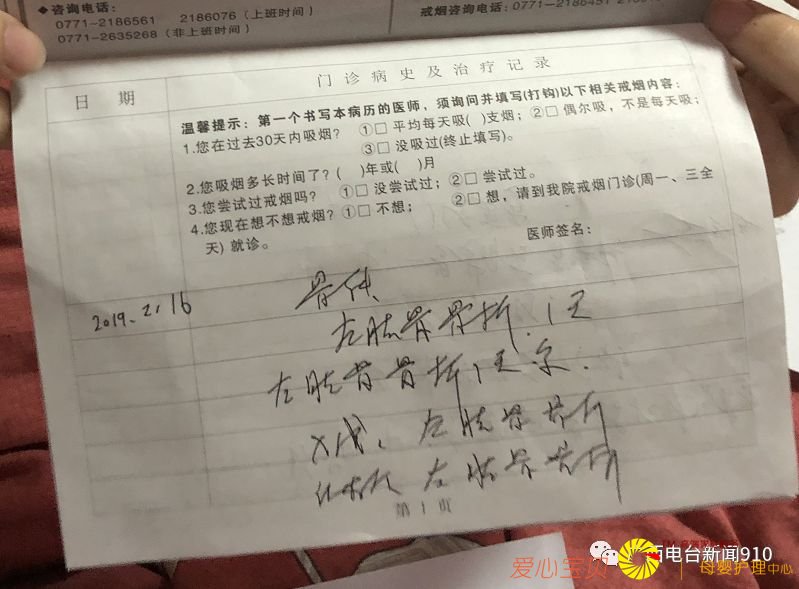 ◆咨询电话:
0771-2186561 2186076 (上班时间)
0771-2635268 (非上班时间)
戒烟咨询电话: 0771-2186451
日 期
门诊病史及治疗记录
温馨提示: 第一个书写本病历的医师, 须询问并填写(打钩)以下相关戒烟内容:
1.您在过去30天内吸烟? ①□ 平均每天吸( )支烟; ②□ 偶尔吸, 不是每天吸;
③□ 没吸过(终止填写)。
2.您吸烟多长时间了? ( )年或( )月
3.您尝试过戒烟吗? ①□ 没尝试过; ②□ 尝试过。
4.您现在想不想戒烟? ①□ 不想; ②□ 想, 请到我院戒烟门诊(周一、三全
天) 就诊。
医师签名:
2019.2.16
左肱骨骨折
左肱骨骨折
X片: 左肱骨骨折
左肱骨骨折
第1页
电台新闻910
爱心宝贝
母婴护理中心